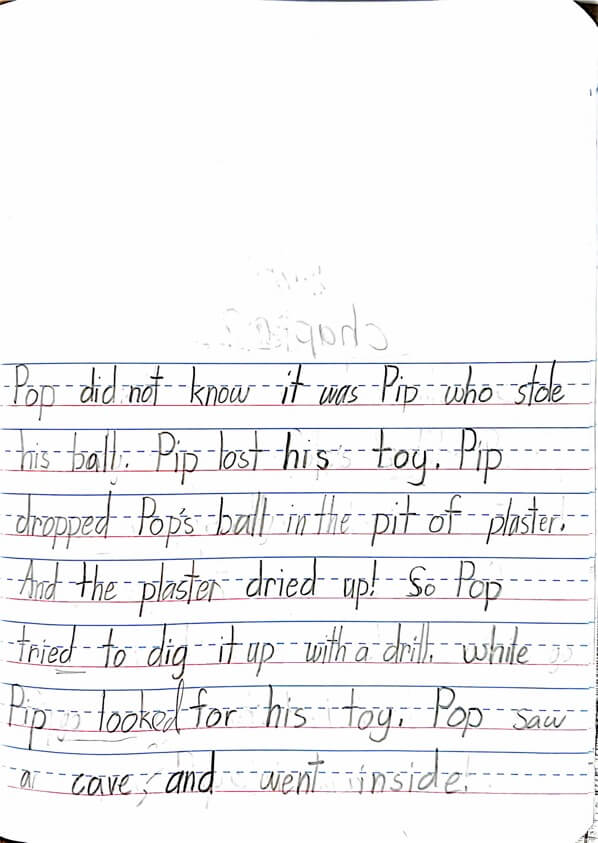 Pop did not know it was Pip who stole
his ball. Pip lost his toy. Pip
dropped Pop's ball in the pit of plaster.
And the plaster dried up! So Pop
tried to dig it up with a drill. while
Pip looked for his toy. Pop saw
a cave, and went inside.